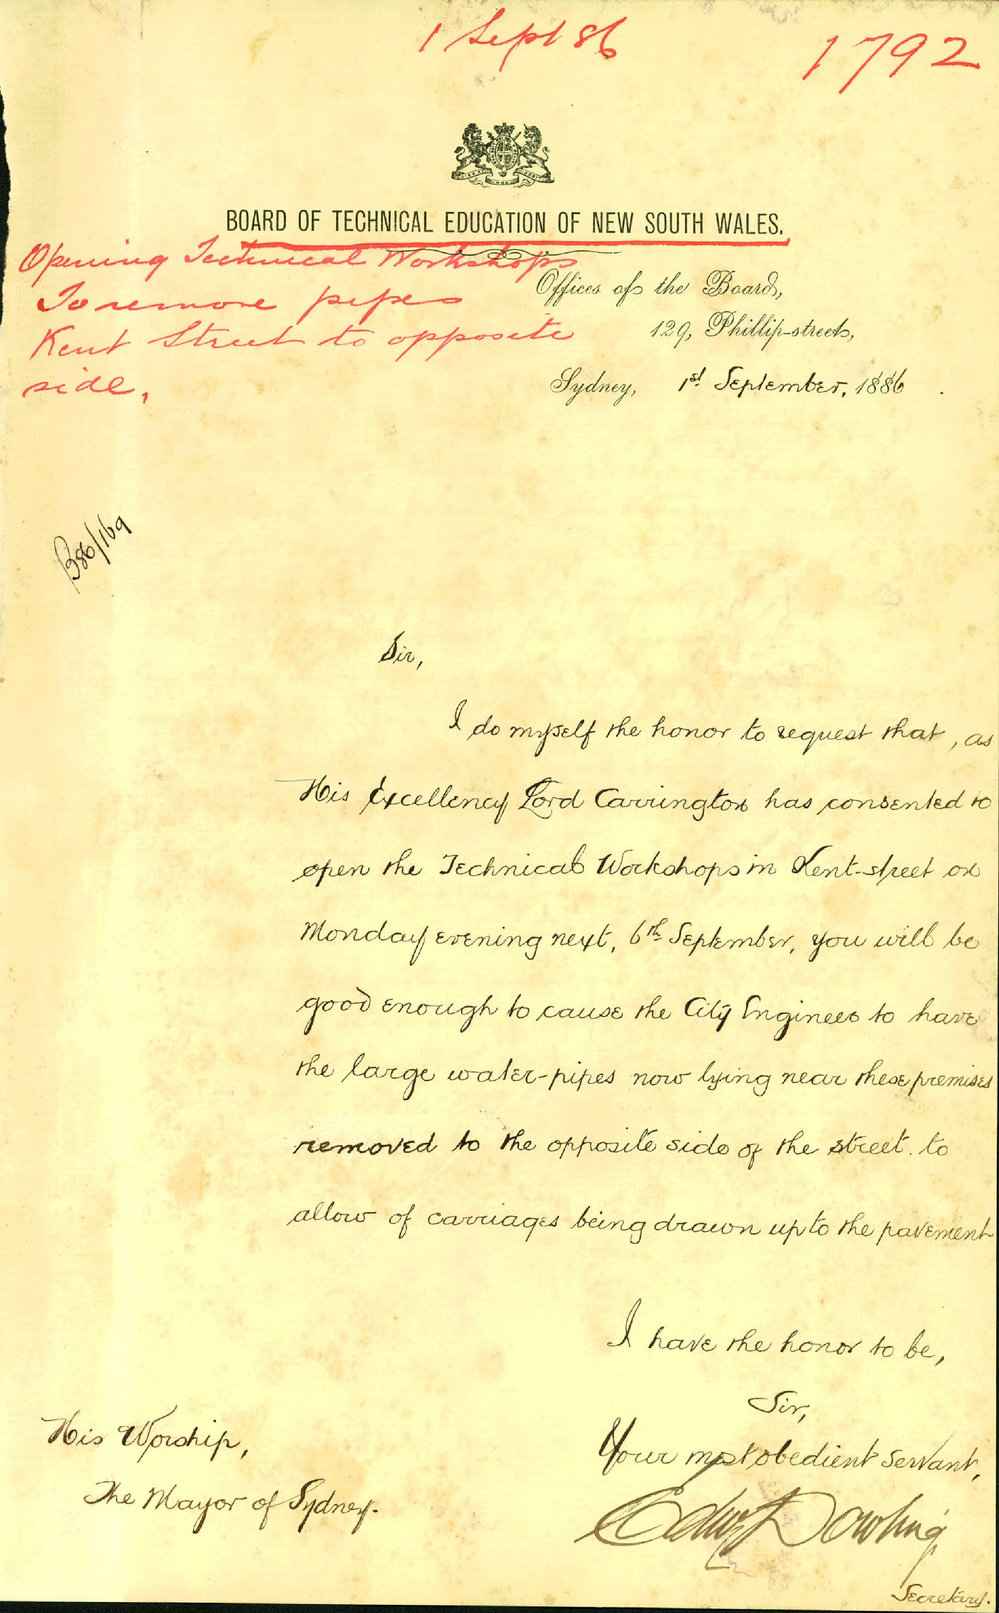 1 Sept 86
1792
BOARD OF TECHNICAL EDUCATION OF NEW SOUTH WALES.
Opening Technical Workshops
To remove pipes
Kent Street to opposite
side.
Offices of the Board,
129, Phillip-street,
Sydney, 1st September, 1886.
B86/169
Sir,
I do myself the honor to request that, as
His Excellency Lord Carrington has consented to
open the Technical Workshops in Kent-street on
Monday evening next, 6th September, you will be
good enough to cause the City Engineer to have
the large water-pipes now lying near these premises
removed to the opposite side of the street. to
allow of carriages being drawn up to the pavement
I have the honor to be,
Sir,
Your most obedient servant,
Edwd Dowling
Secretary.
His Worship,
The Mayor of Sydney.